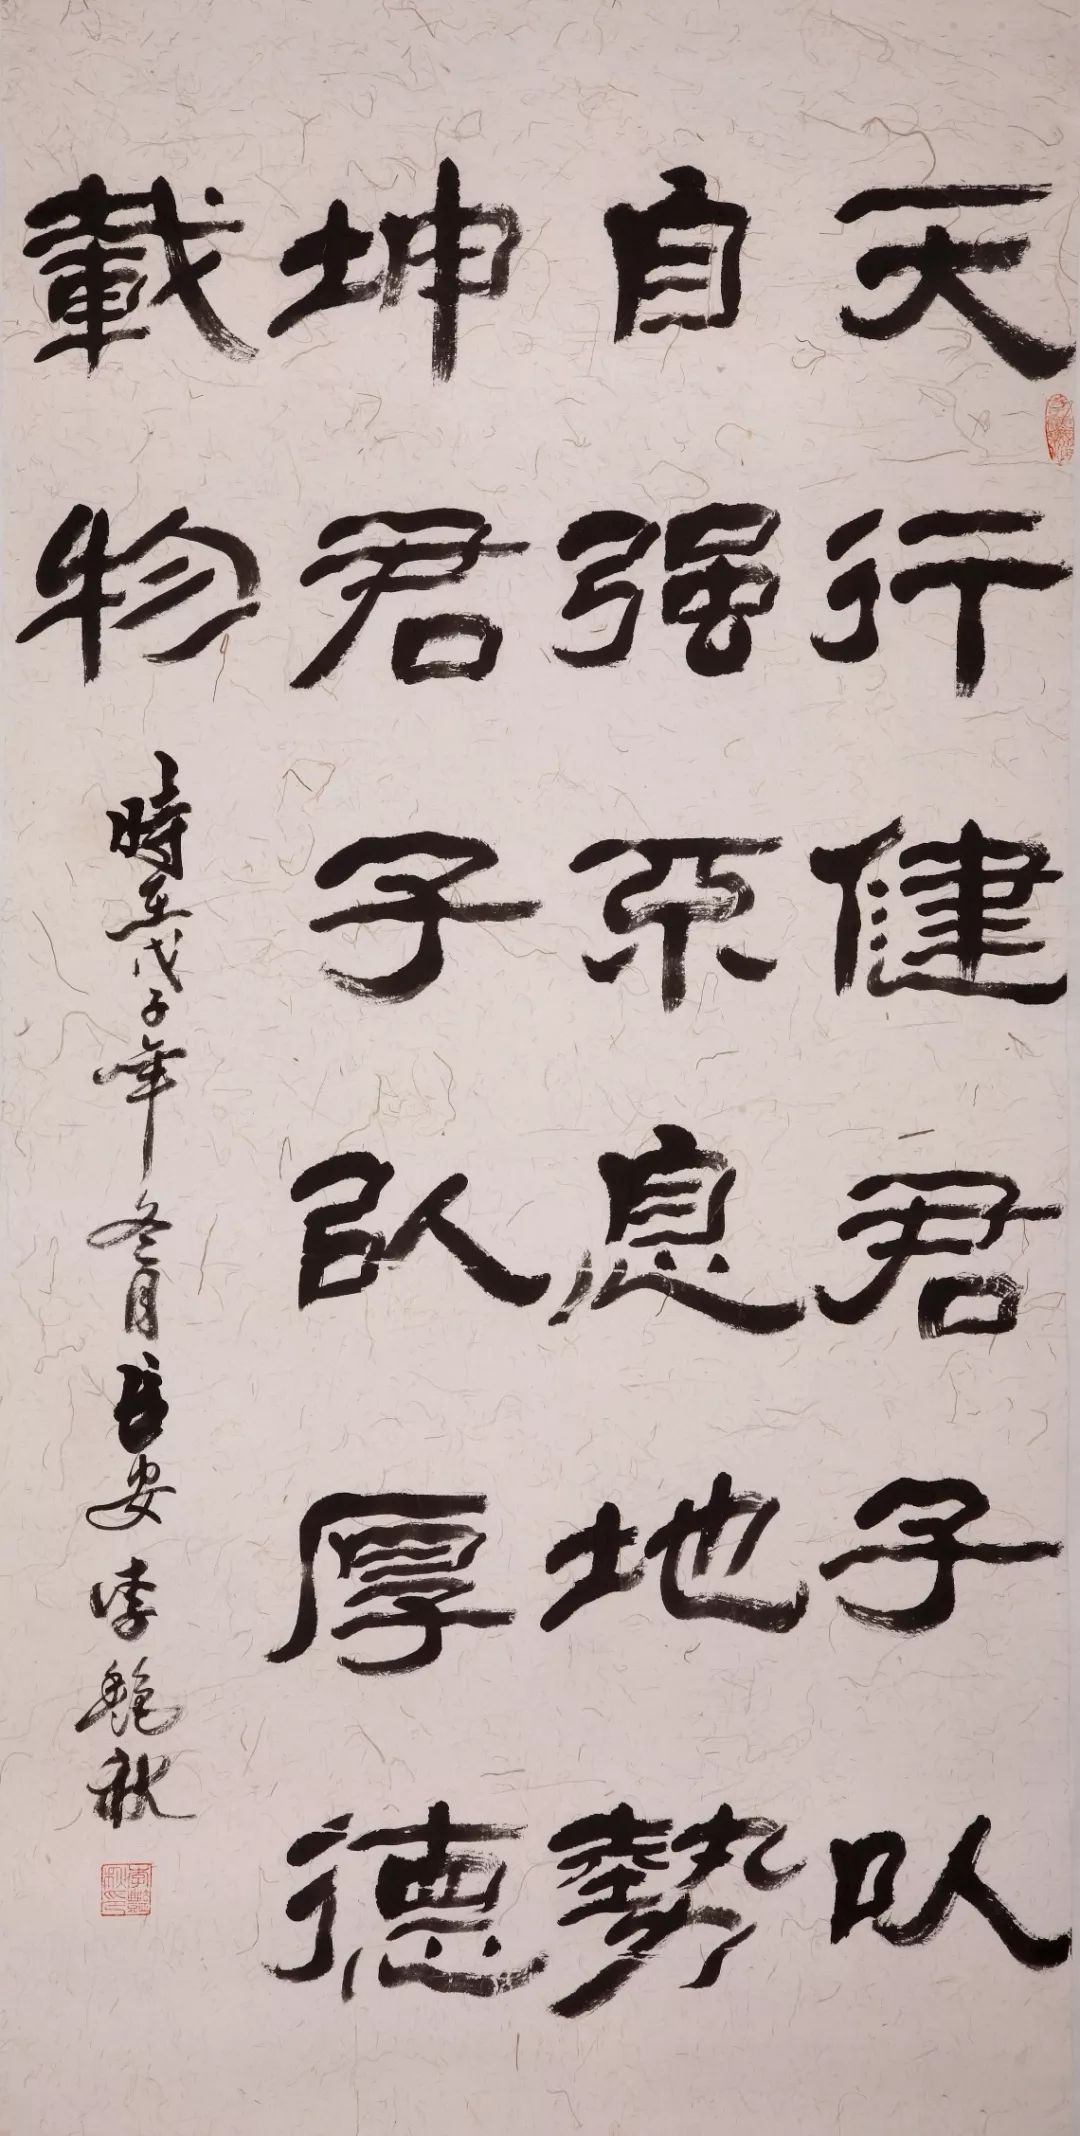 天行健君子以
自强不息地勢
坤君子以厚德
載物
時在戊子年冬月長安李艷秋